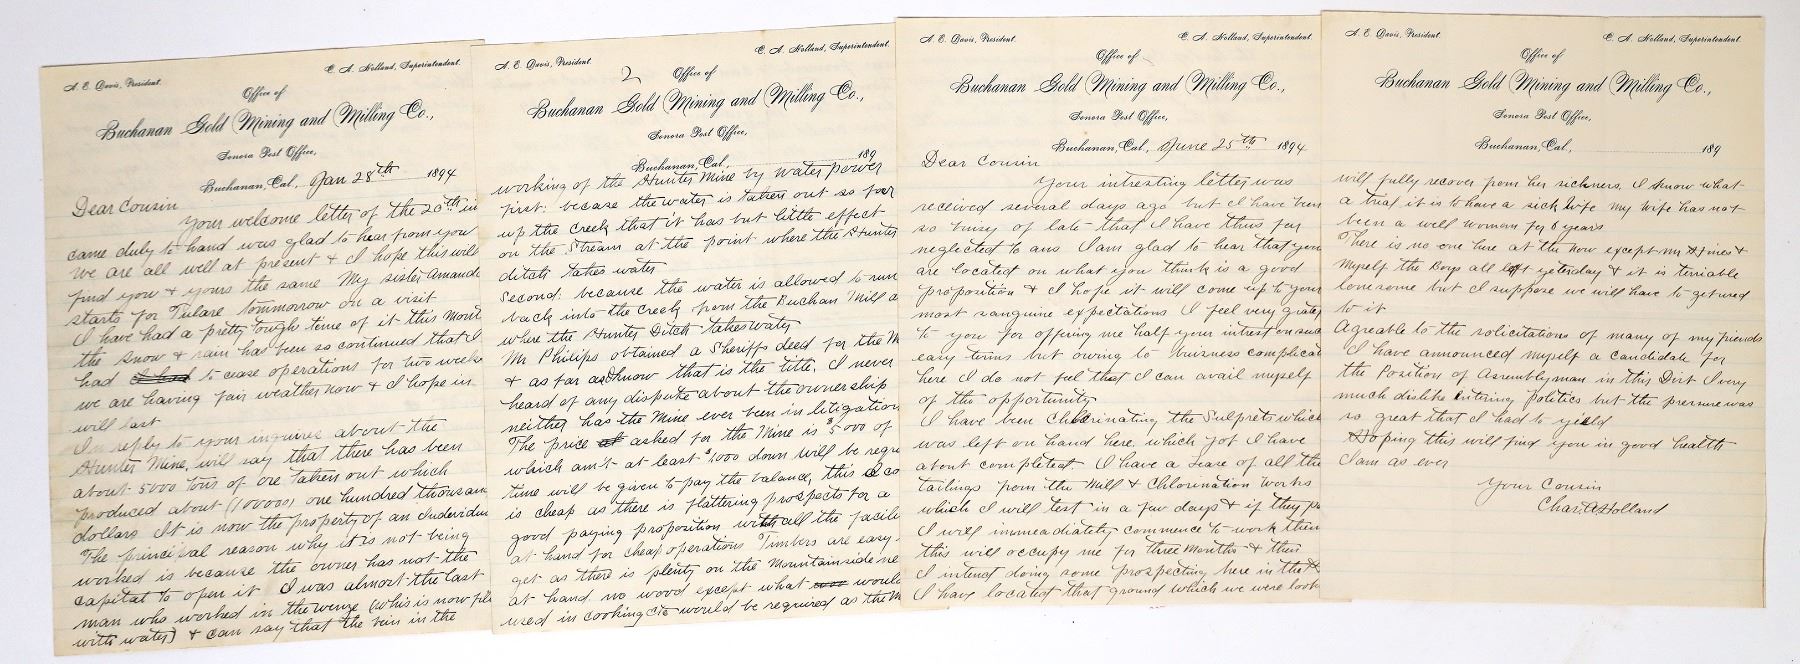 A. E. Davis, President.
C. A. Holland, Superintendent.
Office of
Buchanan Gold Mining and Milling Co.,
Sonora Post Office,
Buchanan, Cal., Jan 28th 1894
Dear Cousin
Your welcome letter of the 20th in
came duly to hand was glad to hear from you
we are all well at present & I hope this will
find you & yours the same My sister Amanda
starts for Tulare tommorrow on a visit
I have had a pretty tough time of it this Mont
the snow & rain has been so continued that I
had I had to cease operations for two weeks
we are having fair weather now & I hope in
will last
In reply to your inquires about the
Hunter Mine, will say that there has been
about 5000 tons of ore taken out which
produced about (100000) one hundred thousan
dollars It is now the property of an Individu
The principal reason why it is not being
worked is because the owner has not the
capital to open it I was almost the last
man who worked in the (whis is now fil
with water) & can say that the vein in the
A. E. Davis, President
C. A. Holland, Superintendent.
2
Office of
Buchanan Gold Mining and Milling Co.,
Sonora Post Office,
Buchanan, Cal., 189
working of the Hunter Mine by water power
first: becase the water is taken out so far
up the creek that it has but little effect
on the Stream at the point where the Hunter
ditch takes water
Second: because the water is allowed to run
back into the creek from the Buchan Mill a
where the Hunter Ditch takes water
Mr Philips obtained a Sheriffs deed for the M
& as far as I know that is the title. I never
heard of any dispute about the ownership
neither has the Mine ever been in litigation
The price asked for the Mine is $5000 of
which ain't at least $1000 down will be requ
time will be given to pay the balance, this I co
is cheap as there is flattering prospects for a
good paying proposition with all the facili
at hand for cheap operations Timbers are easy
get as there is plenty on the Mountainside ne
at hand no wood except what would
used in cooking etc would be required as the M
A. E. Davis, President.
C. A. Holland, Superintendent.
Office of
Buchanan Gold Mining and Milling Co.,
Sonora Post Office,
Buchanan, Cal., June 25th 1894
Dear Cousin
Your intresting letter was
received several days ago but I have been
so busy of late that I have thus far
neglected to ans I am glad to hear that you
are located on what you think is a good
proposition & I hope it will come up to your
most sanguine expectations I feel very gratef
to you for offering me half your intrest on suc
easy terms but owing to buisness complicat
here I do not feel that I can avail myself
of the opportunity
I have been Chlorinating the Sulprets which
was left on hand here, which job I have
about completed. I have a Lease of all the
tailings from the Mill & Chlorination works
which I will test in a few days & if they pa
I will immeadiately commence to work them
this will occupy me for three Months & then
I intend doing some prospecting here in the
I have located that ground which we were look
A. E. Davis, President.
C. A. Holland, Superintendent.
Office of
Buchanan Gold Mining and Milling Co.,
Sonora Post Office,
Buchanan, Cal., 189
will fully recover from her sickness, I know what
a trial it is to have a sick wife my wife has not
been a well woman for 8 years
There is no one here at the now except Mr Hines &
Myself the Boys all left yeterday & it is terriable
lonesome but I suppose we will have to get used
to it
Agreable to the solicitations of many of my friends
I have announced myself a candidate for
the Position of Assemblyman in this Dist I very
much dislike entering politics but the pressure was
so great that I had to yield
Hoping this will find you in good health
I am as ever
Your Cousin
Chas A Holland